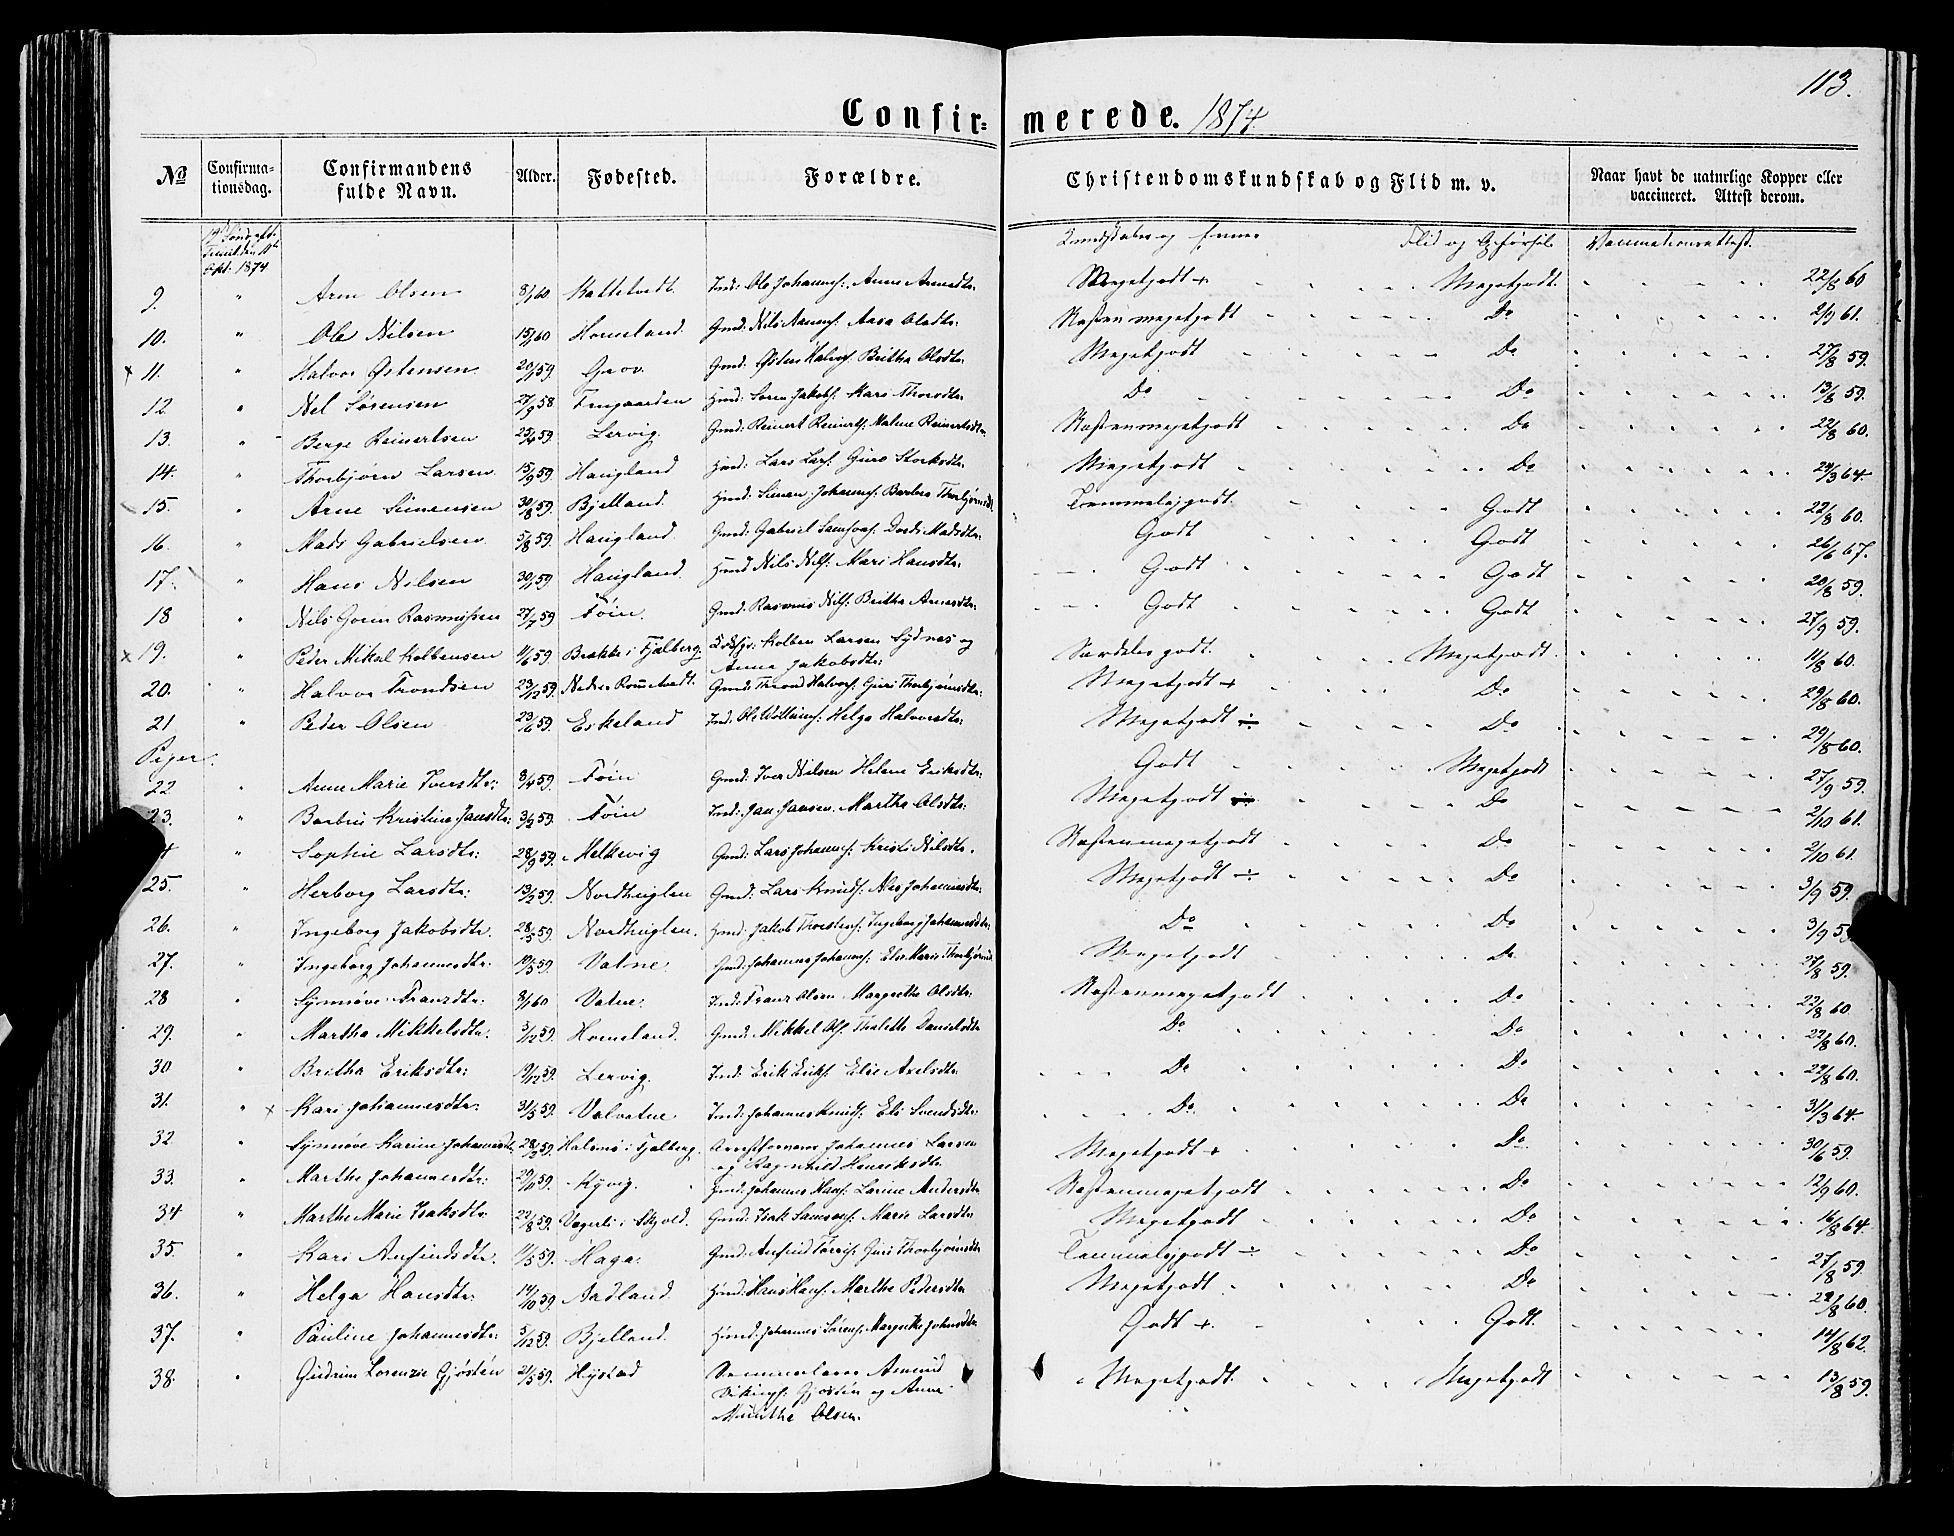 113.
Confir= merede. 1874.
№ Confirma-tionsdag. Confirmandens fulde Navn. Alder. Fødested. Forældre. Christendomskundskab og Flid m. v. Naar havt de naturlige Kopper eller vaccineret. Attest derom.
Okt: 1874 Kundskaber og Flid og Vaccinationsattest.
9. " Arne Olsen 8/1 60 Kattetvedt. Ind: Ole Johannes: Anne Arnedtr: Megetgodt + Megetgodt. 22/8 60
10. " Ole Nilsen 15/1 60 Horneland. Gmd: Nils Aasa Oledtr: Næsten megetgodt Do 2/9 61.
x 11. " Halvor Østensen 20/11 59. Grov. Gmd: Østen Halvors: Britha Olsdtr: Megetgodt Do 27/8 59.
12 " Nel Sørensen 27/9 58 Hmd: Søren Jakobs: Mari Do Do 13/8 59.
13. " Berge Reinertsen 25/4 59 Lervig. Gmd: Reinert Reinerts: Malene Reinertsdtr. Næstenmegetgodt Do 22/8 60.
14. " Thorbjørn Larsen 15/9 59 Haugland Hmd: Lars Lars: Guro Storksdtr: Megetgodt Do 29/3 64.
15. " Arne Simensen 30/8 59 Bjelland. Hmd: Simen Johannes: Barbro Thorbjørnsdt. Temmeligodt. Godt 22/8 60.
16. " Mads Gabrielsen 5/8 59. Haugland. Gmd: Gabriel Samsons: Dordi Madsdtr: Godt Godt 26/6 67.
17. " Hans Nilsen 30/1 59 Haugland. Hmd Nils Nils: Mari Hansdtr: Godt Godt 20/8 59.
18 " Nils Goren Rasmussen 27/7 59 Føin. Gmd: Rasmus Nils: Britha Arnesdtr: Godt Godt 27/9 59.
x 19. " Peder Mikal Kolbensen 11/6 59 Brekke i Fjelberg. Kolben Larsen Sydnes og Særdeles godt. Megetgodt. 11/8 60.
Anna Jakobsdtr:
20. " Halvor Trondsen 23/12 59. Nedre Romtvedt. Gmd: Thrond Halvors: Guri Thorbjørnsdtr: Megetgodt + Do 29/8 60.
21 " Peder Olsen 23/6 59. Eskeland Ind: Ole Helga Halvorsdtr: Megetgodt ÷ Do 29/8 60.
Piger.
22 " Anne Marie Iversdtr: 8/4 59 Føin Gmd: Iver Nilsen Helene Eriksdtr: Godt Megetgodt 27/9 59.
23. " Barbru Kristine Jansdtr: 3/2 59. Føin Ind: Jan Jansen. Martha Olsdtr: Megetgodt ÷ Do 2/10 61.
4 " Sophie Larsdtr: 28/9 59. Melkevig Gmd: Lars Johannes: Kristi Nilsdtr. Næstenmegetgodt Do 2/10 61.
25. " Herborg Larsdtr: 13/2 59. Nordhuglen Gmd: Lars Knuds: Johannesdtr: Megetgodt ÷ Do 3/9 59.
26. " Ingeborg Jakobsdtr. 28/5 59. Nordhuglen. Hmd: Jakob Thorstens: Ingeborg Johannesdtr: Do Do 3/9 59
27. " Ingeborg Johannesdtr. 10/3 59. Vatne. Gmd: Johannes Johannes: Else Marie Megetgodt Do 27/8 59.
28 " Synnøve Franzdtr: 8/1 60 Vatne: Ind: Franz Olsen Margrethe Olsdtr: Næstenmegetgodt Do 22/8 60
29. " Martha Mikkelsdtr: 3/12 59. Horneland. Gmd: Mikkel Ols: Thalette Danielsdtr Do Do 22/8 60.
30 " Britha Eriksdtr: 19/12 59. Lervig. Ind: Erik Eriks: Elsie Axelsdtr. Do Do 29/8 60.
31. " x Kari Johannesdtr: 31/5 59. Valvatne Ind: Johannes Knuds: Eli Svendsdtr: Do Do 31/3 64.
32 " Synnøve Karine Johannesdt. 28/3 59. Halsnø i Fjelberg. Johannes Larsen Megetgodt + Do 30/6 59.
og Ragnhild Henriksdtr
33. " Marthe Johannesdtr: 29/11 59. Kyvig. Hmd: Johannes Hans: Larine Andersdtr Næstenmegetgodt Do 12/9 60.
34 " Marthe Marie Isaksdtr 22/8 59. i Skjold. Gmd: Isak Samsons: Marie Larsdtr Megetgodt Do 16/8 64.
35. " Kari Anfindsdtr. 11/5 59. Haga: Gmd: Anfind Guri Thorbjørnsdtr Temmeligodt ÷ Do 27/8 59
36. " Helga Hansdtr: 14/10 59. Aadland. Hmd: Hans Hans: Marthe Pedersdtr Megetgodt Do 29/8 60.
37. " Pauline Johannesdtr: 5/12 59. Bjelland. Hmd: Johannes Sørens: Margrethe Johnsdtr Godt + Godt. 14/8 62.
38. " Gudrun Lorenzie Gjøstén 21/5 59. Hystad Amund Megetgodt. Megetgodt 13/8 59.
Gjøstén og Anne
Munthe Olsen.